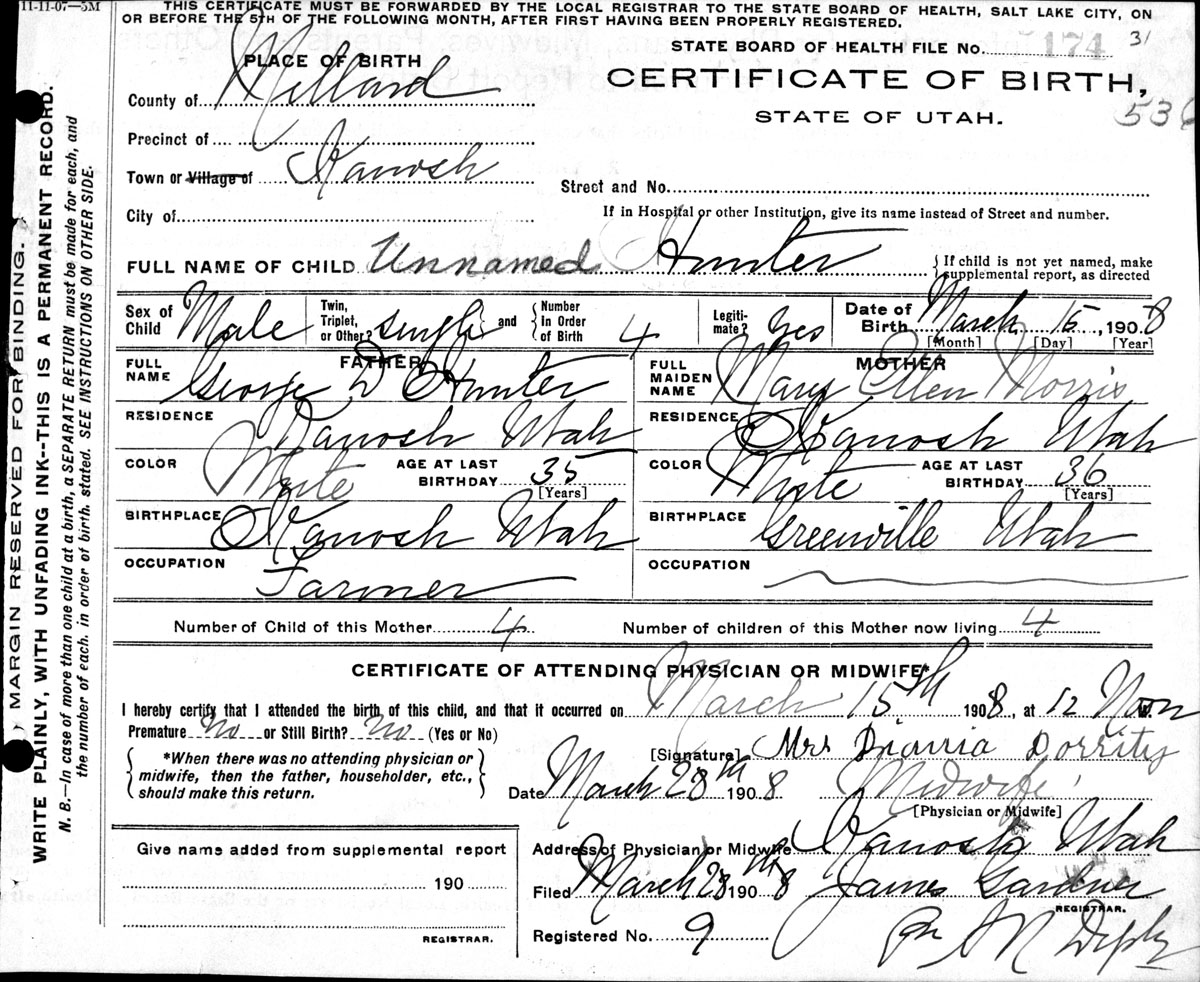 11-11-07—5M
THIS CERTIFICATE MUST BE FORWARDED BY THE LOCAL REGISTRAR TO THE STATE BOARD OF HEALTH, SALT LAKE CITY, ON
OR BEFORE THE 5TH OF THE FOLLOWING MONTH, AFTER FIRST HAVING BEEN PROPERLY REGISTERED.
STATE BOARD OF HEALTH FILE No. 174 31
PLACE OF BIRTH
CERTIFICATE OF BIRTH,
STATE OF UTAH.
536
County of Millard
Precinct of
Town or Village of Kanosh
Street and No.
City of
If in Hospital or other Institution, give its name instead of Street and number.
FULL NAME OF CHILD Unnamed Hunter
If child is not yet named, make
supplemental report, as directed
Sex of Child Male Twin, Triplet, or Other? single and Number In Order of Birth 4 Legiti-mate? Yes Date of Birth March 15, 1908
[Month] [Day] [Year]
FATHER MOTHER
FULL NAME George D Hunter FULL MAIDEN NAME Mary Ellen Morris
RESIDENCE Kanosh Utah RESIDENCE Kanosh Utah
COLOR White AGE AT LAST BIRTHDAY 35 [Years] COLOR White AGE AT LAST BIRTHDAY 36 [Years]
BIRTHPLACE Kanosh Utah BIRTHPLACE Greenville Utah
OCCUPATION Farmer OCCUPATION
Number of Child of this Mother 4 Number of children of this Mother now living 4
CERTIFICATE OF ATTENDING PHYSICIAN OR MIDWIFE*
I hereby certify that I attended the birth of this child, and that it occurred on March 15th 1908, at 12 Noon
Premature No or Still Birth? No (Yes or No)
*When there was no attending physician or
midwife, then the father, householder, etc.,
should make this return.
[Signature] Mrs Dorrity
Date March 28th 1908 Midwife
[Physician or Midwife]
Give name added from supplemental report
190
REGISTRAR.
Address of Physician or Midwife Kanosh Utah
Filed March 28th 1908 James Gardner
REGISTRAR.
Registered No. 9
Deputy
MARGIN RESERVED FOR BINDING.
WRITE PLAINLY, WITH UNFADING INK--THIS IS A PERMANENT RECORD.
N. B.—In case of more than one child at a birth, a SEPARATE RETURN must be made for each, and
the number of each, in order of birth, stated. SEE INSTRUCTIONS ON OTHER SIDE.